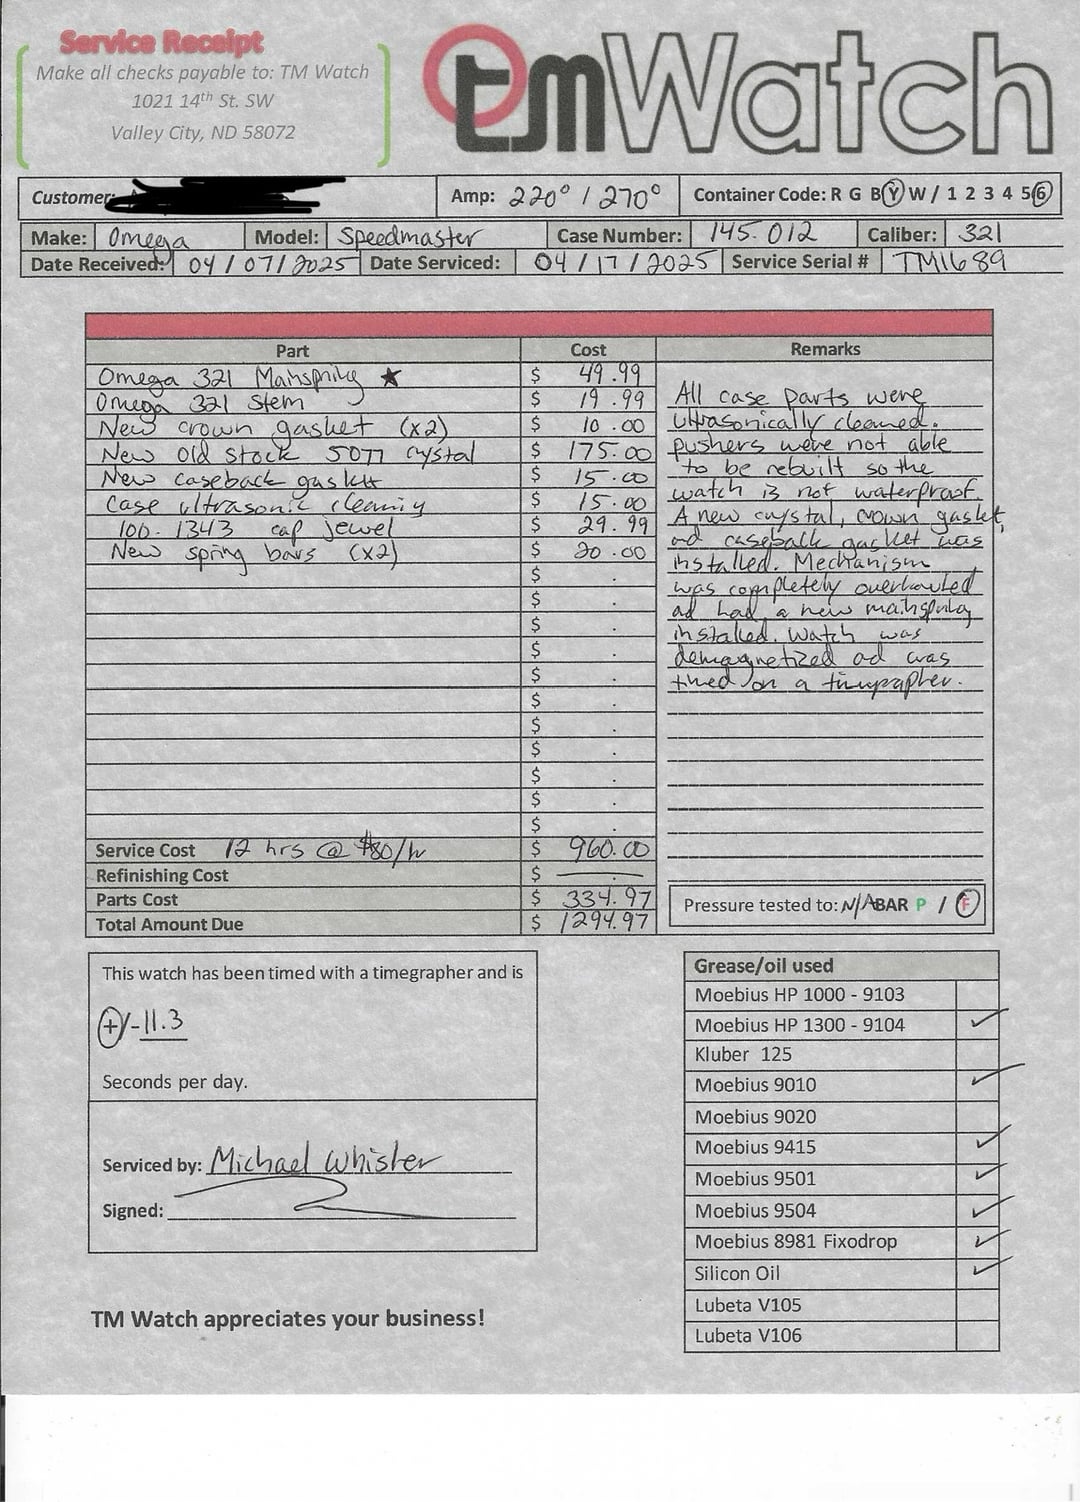 Service Receipt
Make all checks payable to: TM Watch
1021 14th St. SW
Valley City, ND 58072
tmWatch
Customer:
Amp: 220° / 270°
Container Code: R G B Y W / 1 2 3 4 5 6
Make: Omega Model: Speedmaster Case Number: 145.012 Caliber: 321
Date Received: 04/07/2025 Date Serviced: 04/17/2025 Service Serial # TM1689
Part Cost Remarks
Omega 321 Mainspring ★ $ 49.99
Omega 321 Stem $ 19.99
New crown gasket (x2) $ 10.00
New Old Stock 5077 crystal $ 175.00
New caseback gasket $ 15.00
Case ultrasonic cleaning $ 15.00
100.1343 cap jewel $ 29.99
New spring bars (x2) $ 20.00
$ .
$ .
$ .
$ .
$ .
$ .
$ .
$ .
$ .
$ .
$ .
All case parts were
ultrasonically cleaned.
pushers were not able
to be rebuilt so the
watch is not waterproof.
A new crystal, crown gasket,
ad caseback gasket was
installed. Mechanism
was completely overhauled
ad had a new mainspring
installed. Watch was
demagnetized ad was
timed on a timegrapher.
Service Cost 12 hrs @ $80/hr $ 960.00
Refinishing Cost $ .
Parts Cost $ 334.97
Total Amount Due $ 1294.97
Pressure tested to: N/A BAR P / F
This watch has been timed with a timegrapher and is
+/- 11.3
Seconds per day.
Serviced by: Michael Whisler
Signed:
Grease/oil used
Moebius HP 1000 - 9103
Moebius HP 1300 - 9104 ✓
Kluber 125
Moebius 9010 ✓
Moebius 9020
Moebius 9415 ✓
Moebius 9501 ✓
Moebius 9504 ✓
Moebius 8981 Fixodrop ✓
Silicon Oil ✓
Lubeta V105
Lubeta V106
TM Watch appreciates your business!